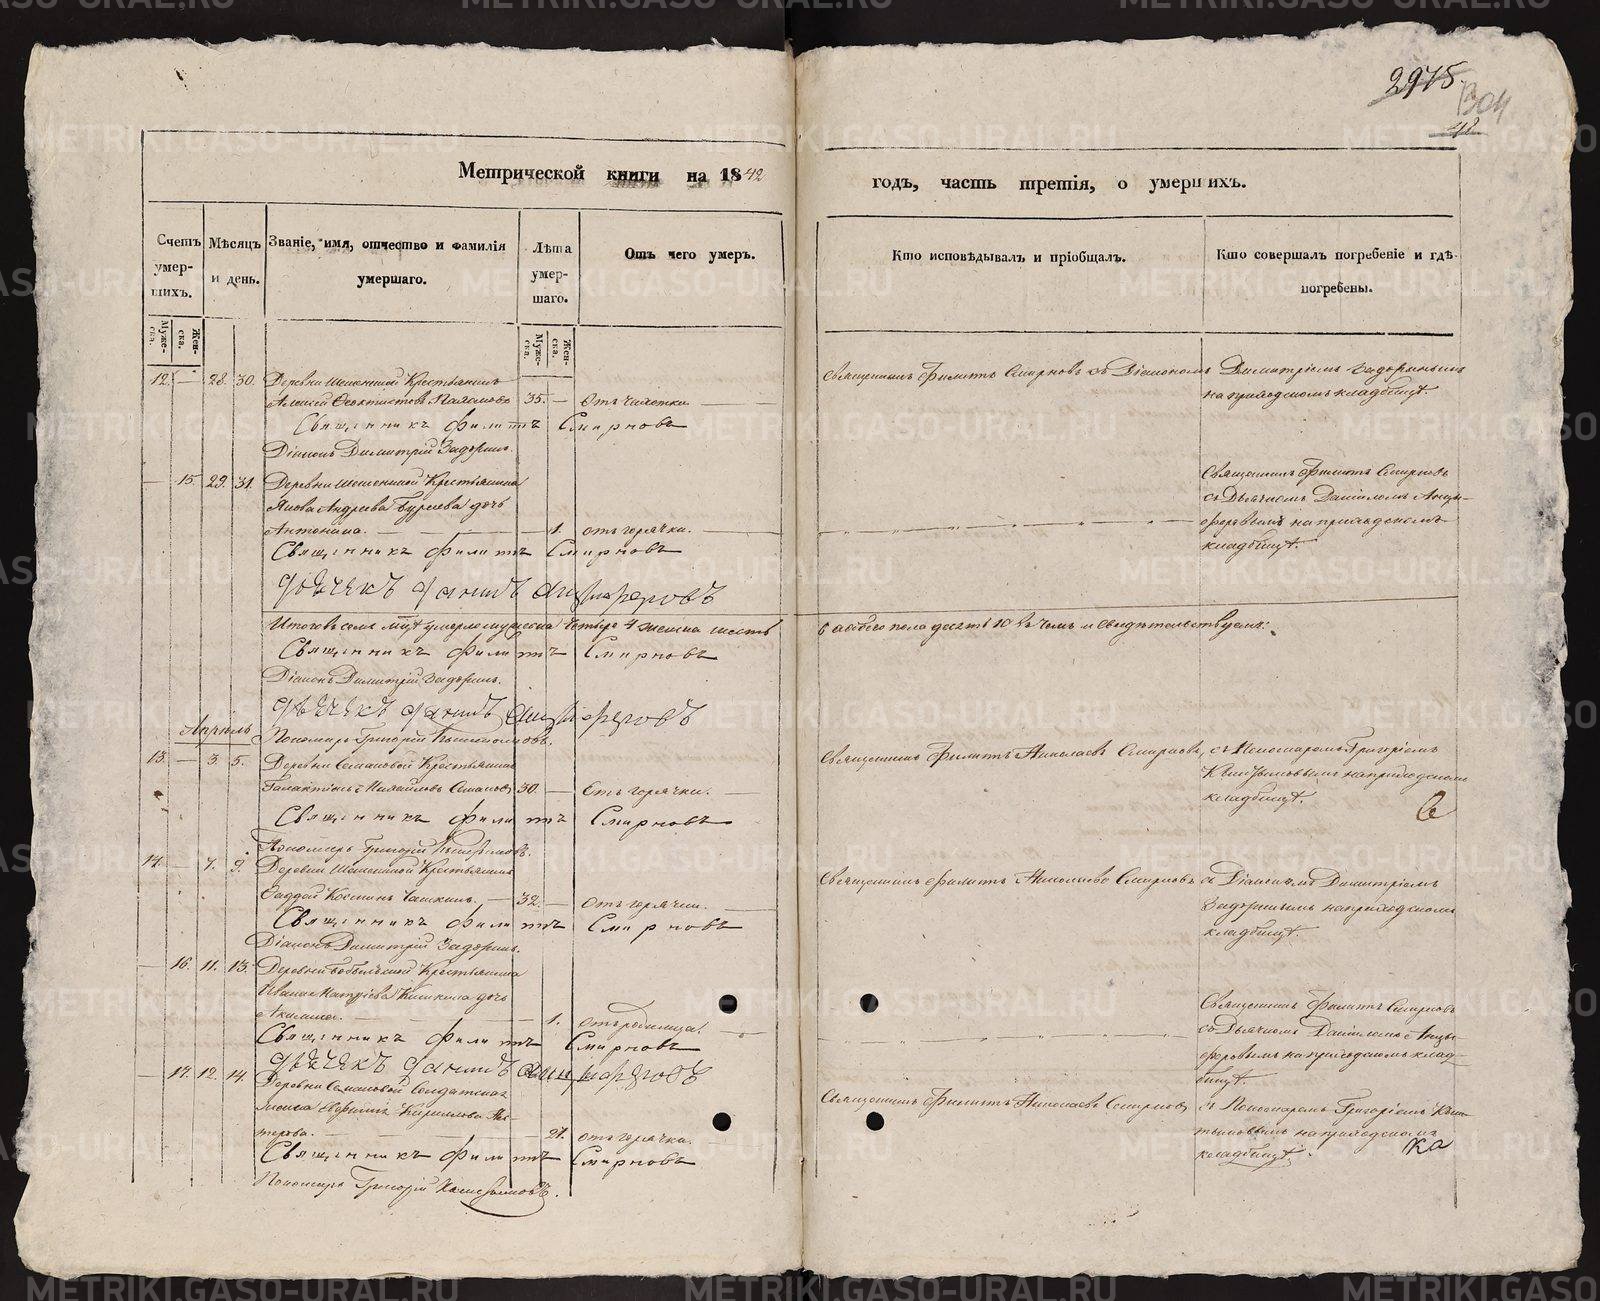 2975
304
42
Метрической книги на 1842
годъ, часть третія, о умершихъ.
Счетъ умер-шихъ.
Муже-ска.
Жен-ска.
Мѣсяцъ и день.
Званіе, имя, отчество и фамилія умершаго.
Лѣта умер-шаго.
Муже-ска.
Жен-ска.
Отъ чего умеръ.
Кто исповѣдывалъ и пріобщалъ.
Кто совершалъ погребеніе и гдѣ погребены.
12. — 28. 30. Деревни Крестьянинъ
Алексѣй Ѳеоктистовъ 35. — Отъ чахотки.
Священникъ Филиппъ Смирновъ съ Діакономъ Димитріемъ Задоринымъ
на приходскомъ кладбищѣ.
Священникъ Филиппъ Смирновъ
Діаконъ Димитрій Задоринъ.
— 15. 29. 31. Деревни Крестьянина
Якова Андреева дочь
Антонина. — 1. отъ горячки.
Священникъ Филиппъ Смирновъ
съ Дьячкомъ Даніиломъ Анци-
феровымъ на приходскомъ
кладбищѣ.
Священникъ Филиппъ Смирновъ
Дьячекъ Данiилъ Анциферовъ
Итого въ семъ м-цѣ умерло мужеска четыре 4 женска шесть
6 а обоего пола десять 10 въ чемъ и свидѣтельствуемъ:
Священникъ Филиппъ Смирновъ
Діаконъ Димитрій Задоринъ.
Дьячекъ Данiилъ Анциферовъ
Пономарь Григорій
Апрѣль
13. — 3. 5. Деревни Крестьянинъ
Галактіонъ Михайловъ 30. — Отъ горячки.
Священникъ Филиппъ Николаевъ Смирновъ, съ Пономаремъ Григоріемъ
на приходскомъ
кладбищѣ.
Священникъ Филиппъ Смирновъ
Пономарь Григорій
14. — 7. 9. Деревни Крестьянинъ
Ѳаддей Косминъ 32. — отъ горячки.
Священникъ Филиппъ Николаевъ Смирновъ съ Діакономъ Димитріемъ
Задоринымъ на приходскомъ
кладбищѣ.
Священникъ Филиппъ Смирновъ
Діаконъ Димитрій Задоринъ.
— 16. 11. 13. Деревни Крестьянина
Ивана дочь
Акилина. — 1. отъ родимца.
Священникъ Филиппъ Смирновъ
съ Дьячкомъ Даніиломъ Анци-
феровымъ на приходскомъ клад-
бищѣ.
Священникъ Филиппъ Смирновъ
Дьячекъ Данiилъ Анциферовъ
— 17. 12. 14. Деревни Солдатская
жена Кирилова
— 21. отъ горячки.
Священникъ Филиппъ Николаевъ Смирновъ съ Пономаремъ Григоріемъ
на приходскомъ
кладбищѣ.
Священникъ Филиппъ Смирновъ
Пономарь Григорій
ка
METRIKI.GASO-URAL.RU